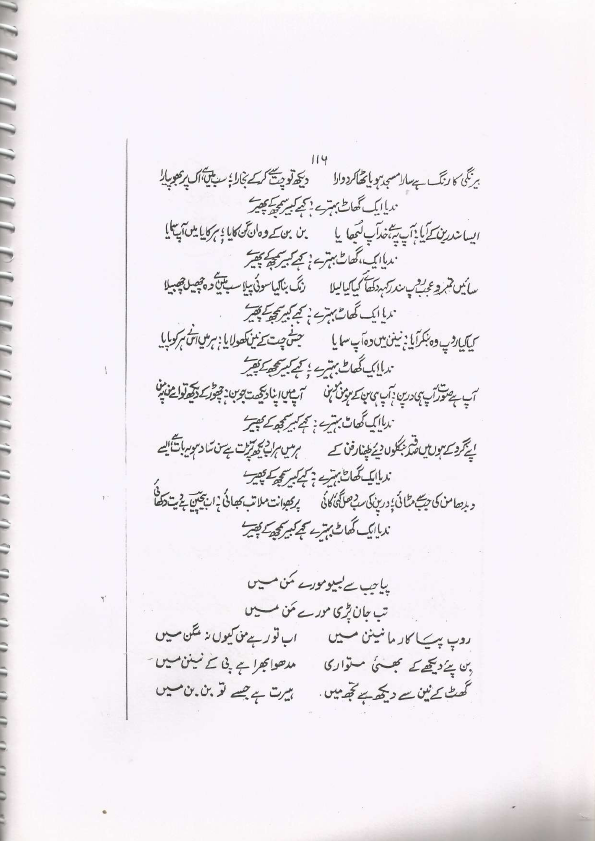 ۱۱۶
بیرنگی کا رنگ ہے سارا مسجد ہو یا ٹھاکر دوارا دیکھ تو چت سے کر کے نجارا؛ سب میں ہے اک پربھو پیارا
ندیا ایک گھاٹ بہترے؛ کہے کبیر سمجھ کے پھیرے
ایسا سندر بن کے آیا؛ آپ پہ ہے خد آپ لبھایا بن بن کے وہ ان گن کایا؛ ہر کایا میں آپ سمایا
ندیا ایک گھاٹ بہترے؛ کہے کبیر سمجھ کے پھیرے
سائیں روپ سندر کہہ دکھائے کیا کیا لیلا رنگ بنا کیا سوئی پیلا سب میں ہے وہ چھیل چھبیلا
ندیا ایک گھاٹ بہترے؛ کہے کبیر سمجھ کے پھیرے
کیا کیا روپ وہ بنکر آیا؛ نینن میں وہ آپ سمایا جسنے چت کے نین کھولایا؛ ہر میں اسنے ہر کو پایا
ندیا ایک گھاٹ بہترے؛ کہے کبیر سمجھ کے پھیرے
آپ ہے صورت آپ ہی درپن؛ آپ ہی بن کے آپ میں اپنا دیکھت جوبن؛ چھوڑ کے دیکھ تو
ندیا ایک گھاٹ بہترے؛ کہے کبیر سمجھ کے پھیرے
ایسے گرو کے ہوں میں صدقے جنکوں دیئے ہر میں
ندیا ایک گھاٹ بہترے؛ کہے کبیر سمجھ کے پھیرے
دبدھا من کی جب سے مٹائی؛ درپن کی سب دھل گئی کائی پربھو انت ملا تب بھائی؛ اب دیت دکھائی
ندیا ایک گھاٹ بہترے کہے کبیر سمجھ کے پھیرے
پیا جب سے بسیو مورے من میں
تب جان پڑی مورے من میں
روپ پیا کا رما نینن میں اب تو رہے من کیوں نہ مگن میں
بن پئے دیکھے کے بھئی متواری مدھوا بھرا ہے پی کے نینن میں
گھٹ کے نین سے دیکھ ہے تجھ میں ہیرت ہے جسے تو بن بن میں